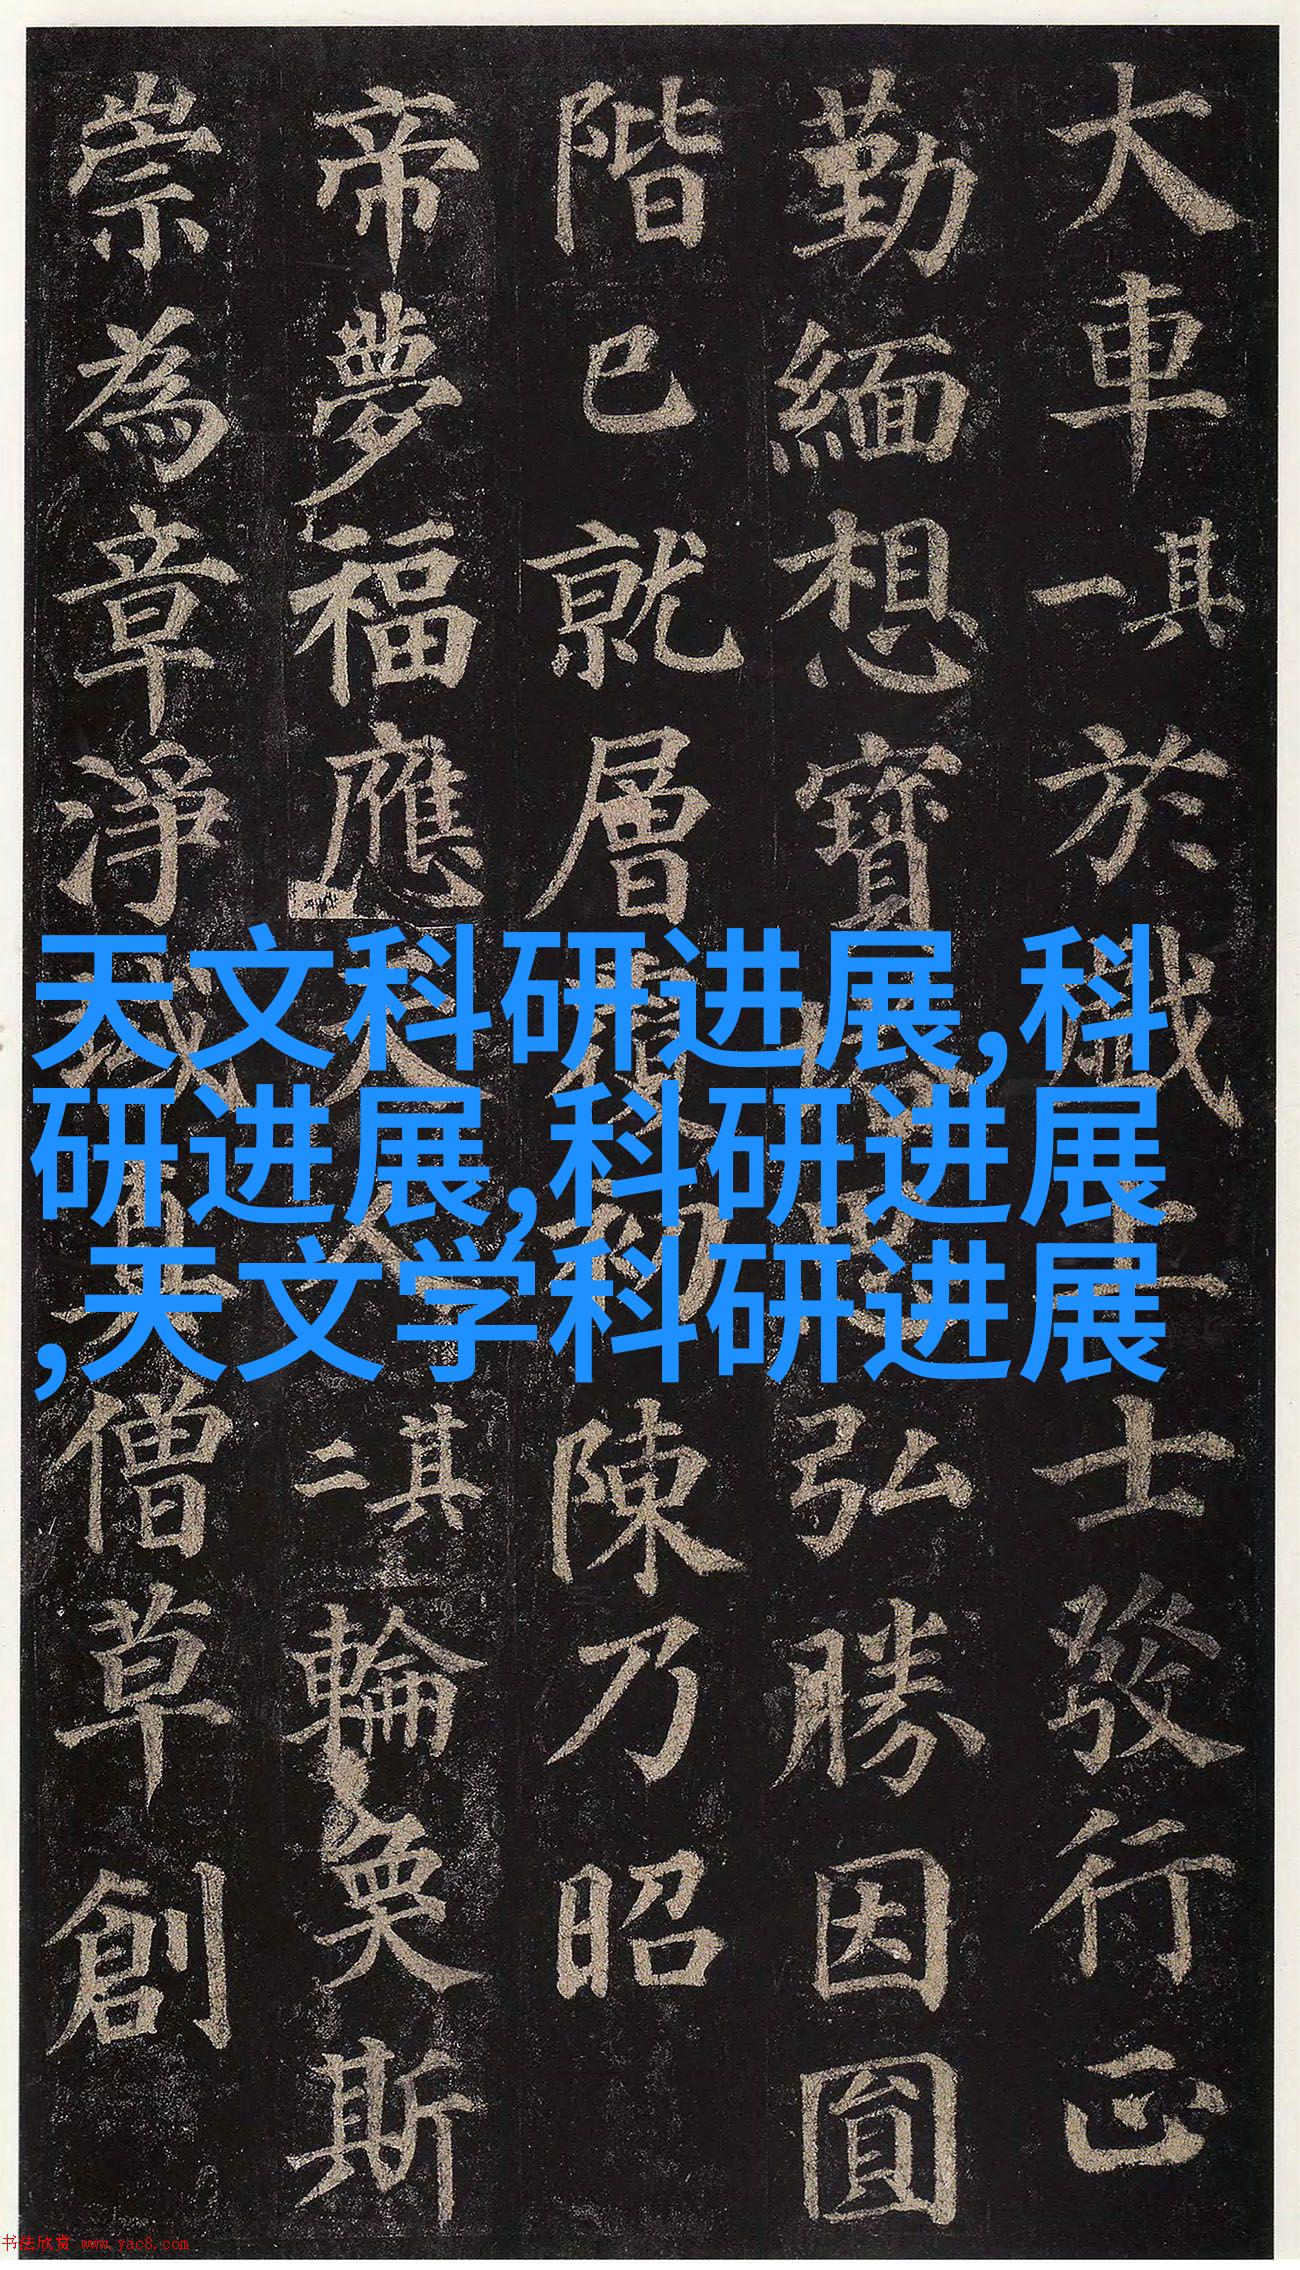 大車其一於戲上士發行正
勤緬想寶塔思弘勝因圓
階已就層覆初陳乃昭
帝夢福應天人其二輪奐斯
崇為章淨域真僧草創
天文科研进展,科
研进展,科研进展
,天文学科研进展
书法欣赏 www.yac8.com